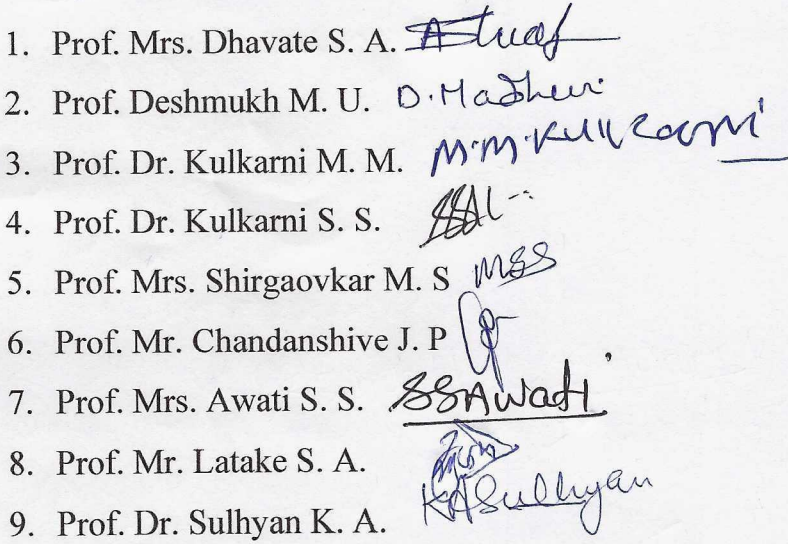 1. Prof. Mrs. Dhavate S. A.
2. Prof. Deshmukh M. U. D. Madhevi
3. Prof. Dr. Kulkarni M. M. M.M.Kulkarni
4. Prof. Dr. Kulkarni S. S.
5. Prof. Mrs. Shirgaovkar M. S MSS
6. Prof. Mr. Chandanshive J. P
7. Prof. Mrs. Awati S. S. SSAwati
8. Prof. Mr. Latake S. A.
9. Prof. Dr. Sulhyan K. A. KASulhyan